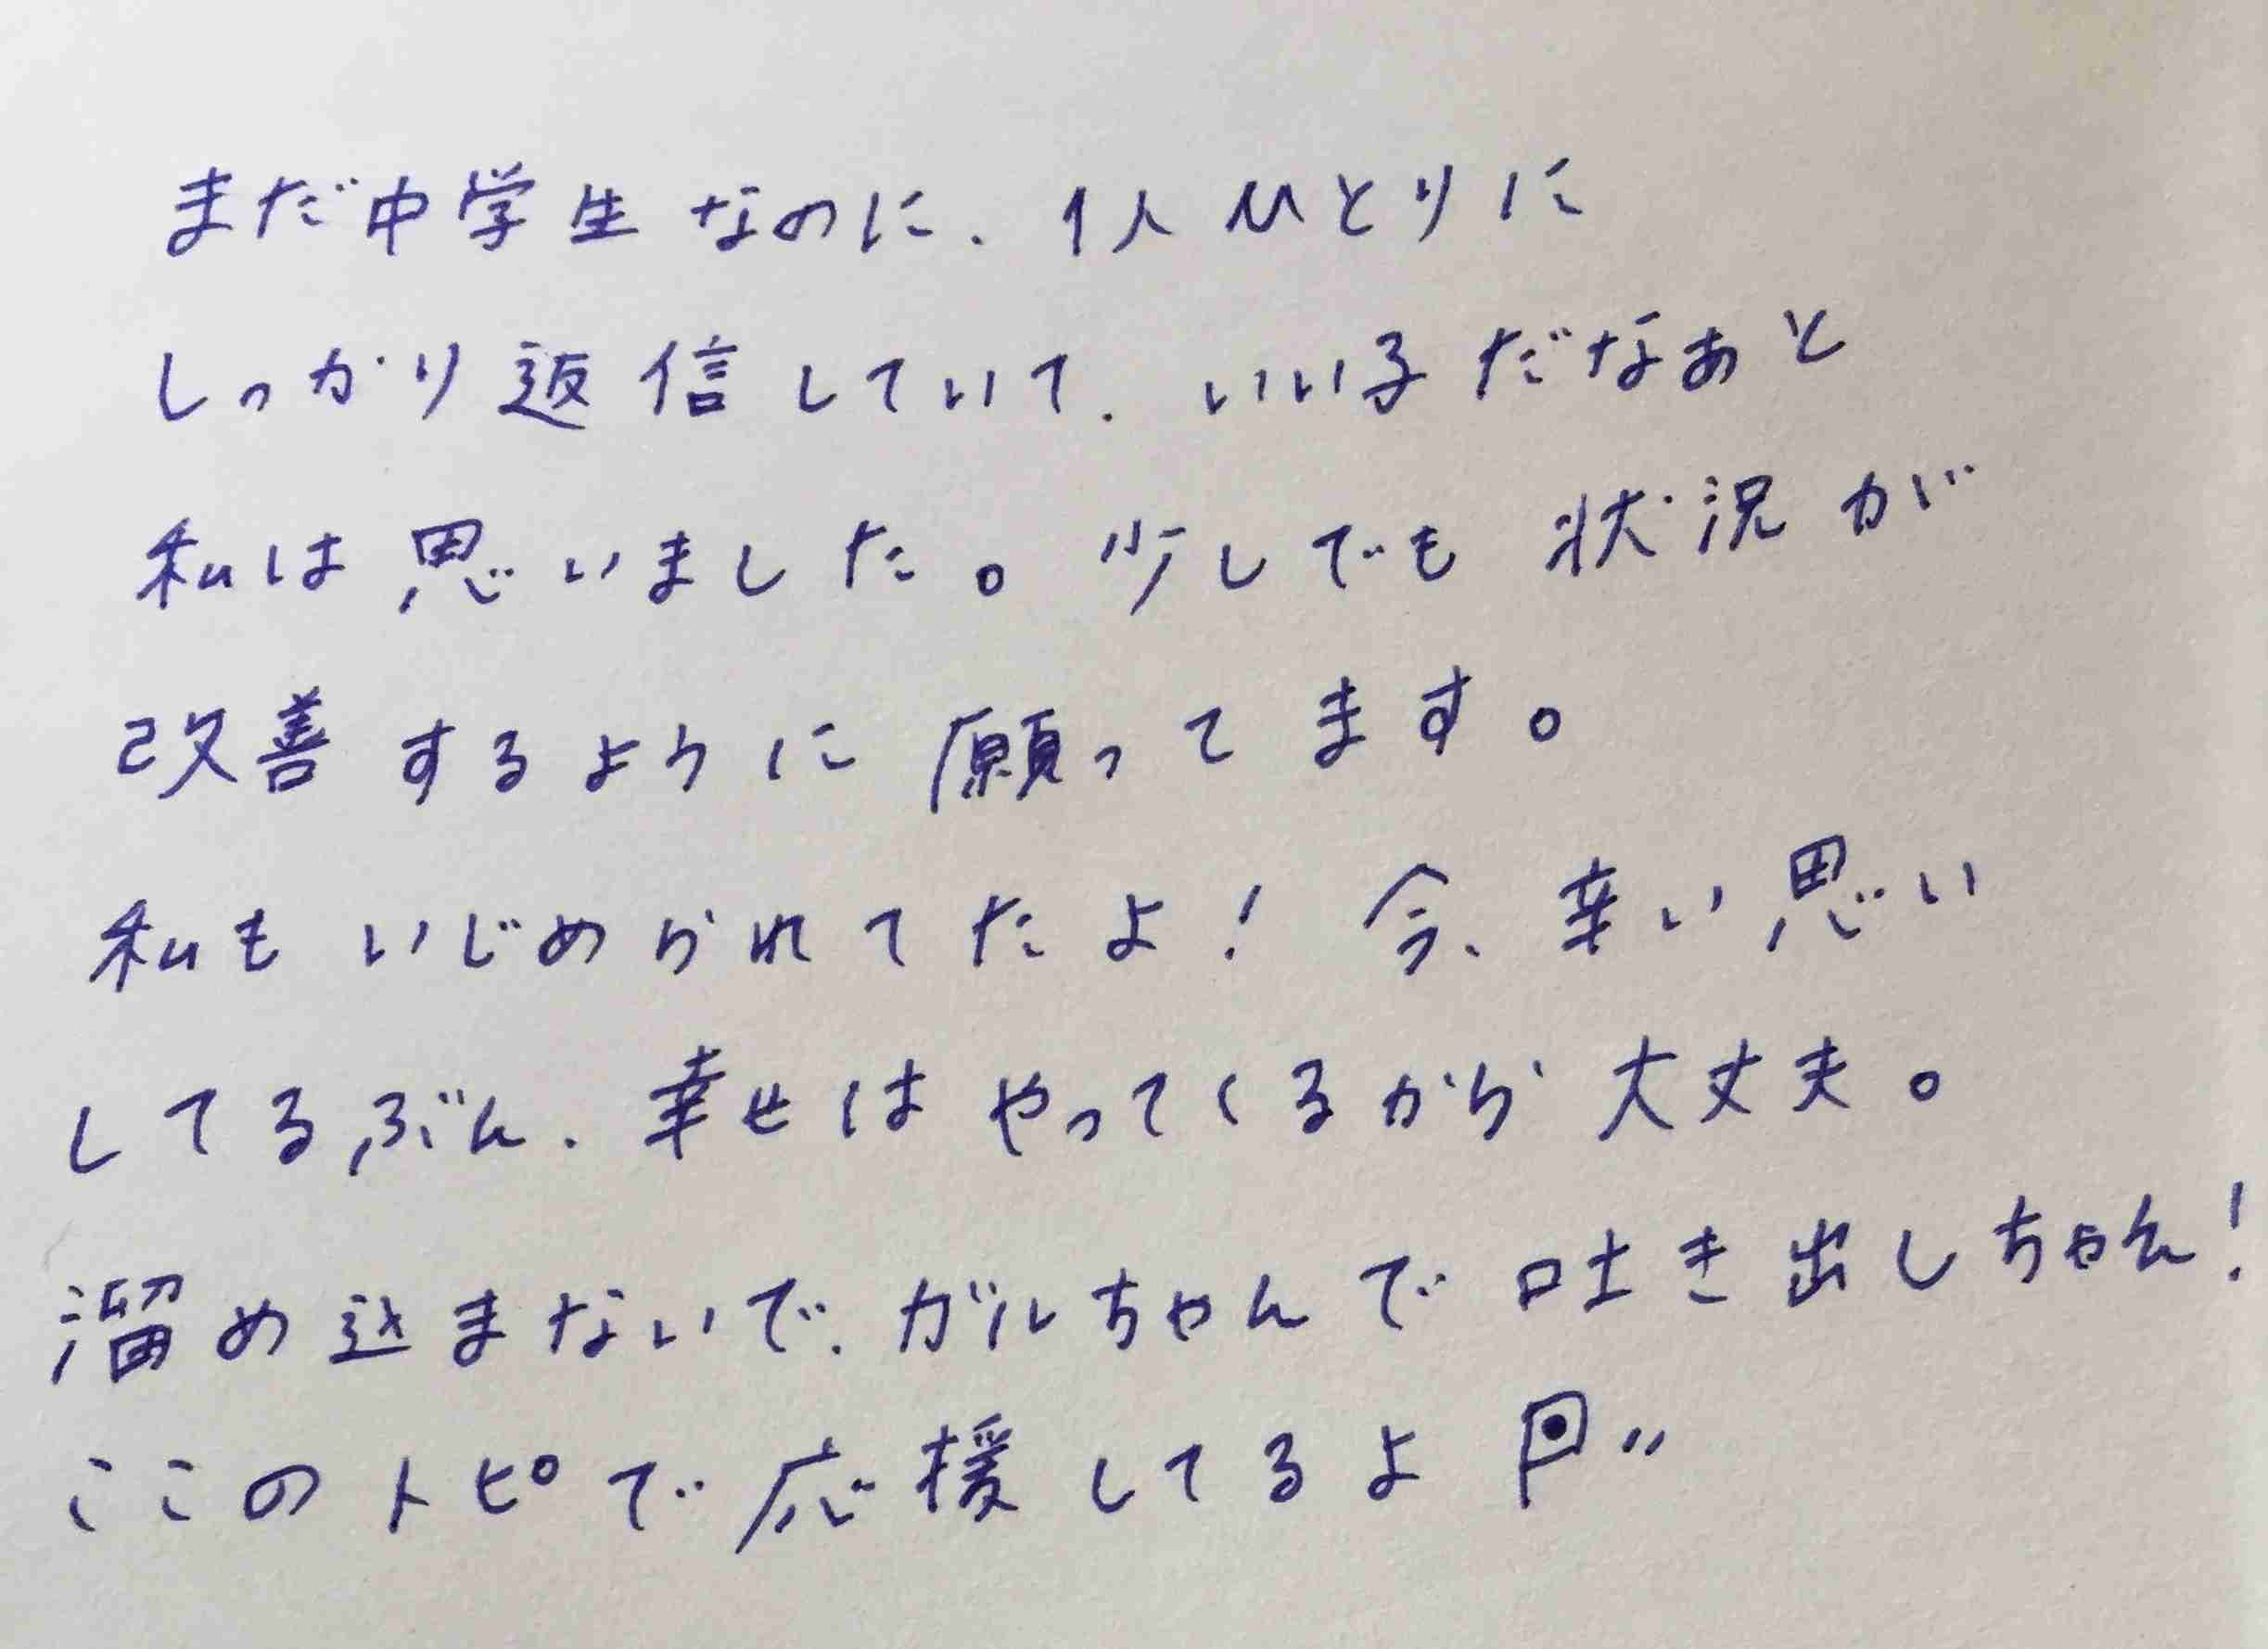 まだ中学生なのに、1人ひとりに
しっかり返信していて、いい子だなぁと
私は思いました。少しでも状況が
改善するように願ってます。
私もいじめられてたよ!今、辛い思い
してるぶん、幸せはやってくるから大丈夫。
溜め込まないで、ガルちゃんで吐き出しちゃえ!
ここのトピで応援してるよ